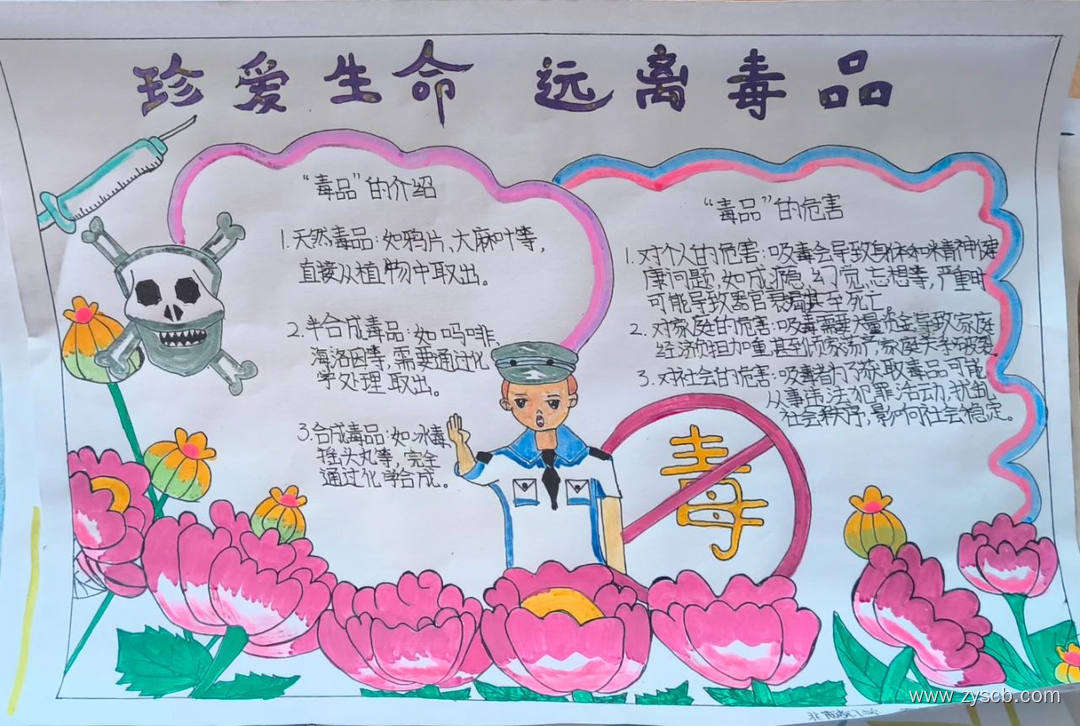 珍爱生命 远离毒品
“毒品”的介绍
1.天然毒品:如鸦片,大麻叶等,
直接从植物中取出。
2.半合成毒品:如吗啡、
海洛因等,需要通过化
学处理取出。
3.合成毒品:如冰毒,
摇头丸等,完全
通过化学合成。
“毒品”的危害
1.对个人的危害:吸毒会导致身体和精神健
康问题,如成瘾,幻觉,妄想等,严重时
可能导致器官衰竭甚至死亡
2.对家庭的危害:吸毒需要大量资金,导致家庭
经济负担加重,甚至倾家荡产,家庭关系破裂
3.对社会的危害:吸毒者为了获取毒品可能
从事违法犯罪活动,扰乱
社会秩序,影响社会稳定。
毒
www.zyscb.com